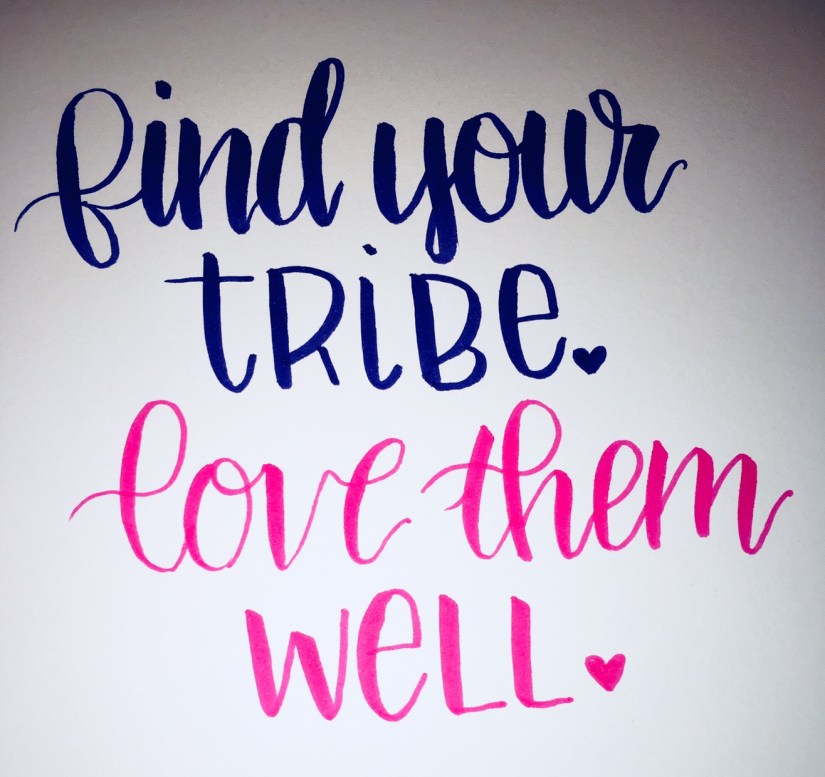 find your
tRiBe.
love them
well.